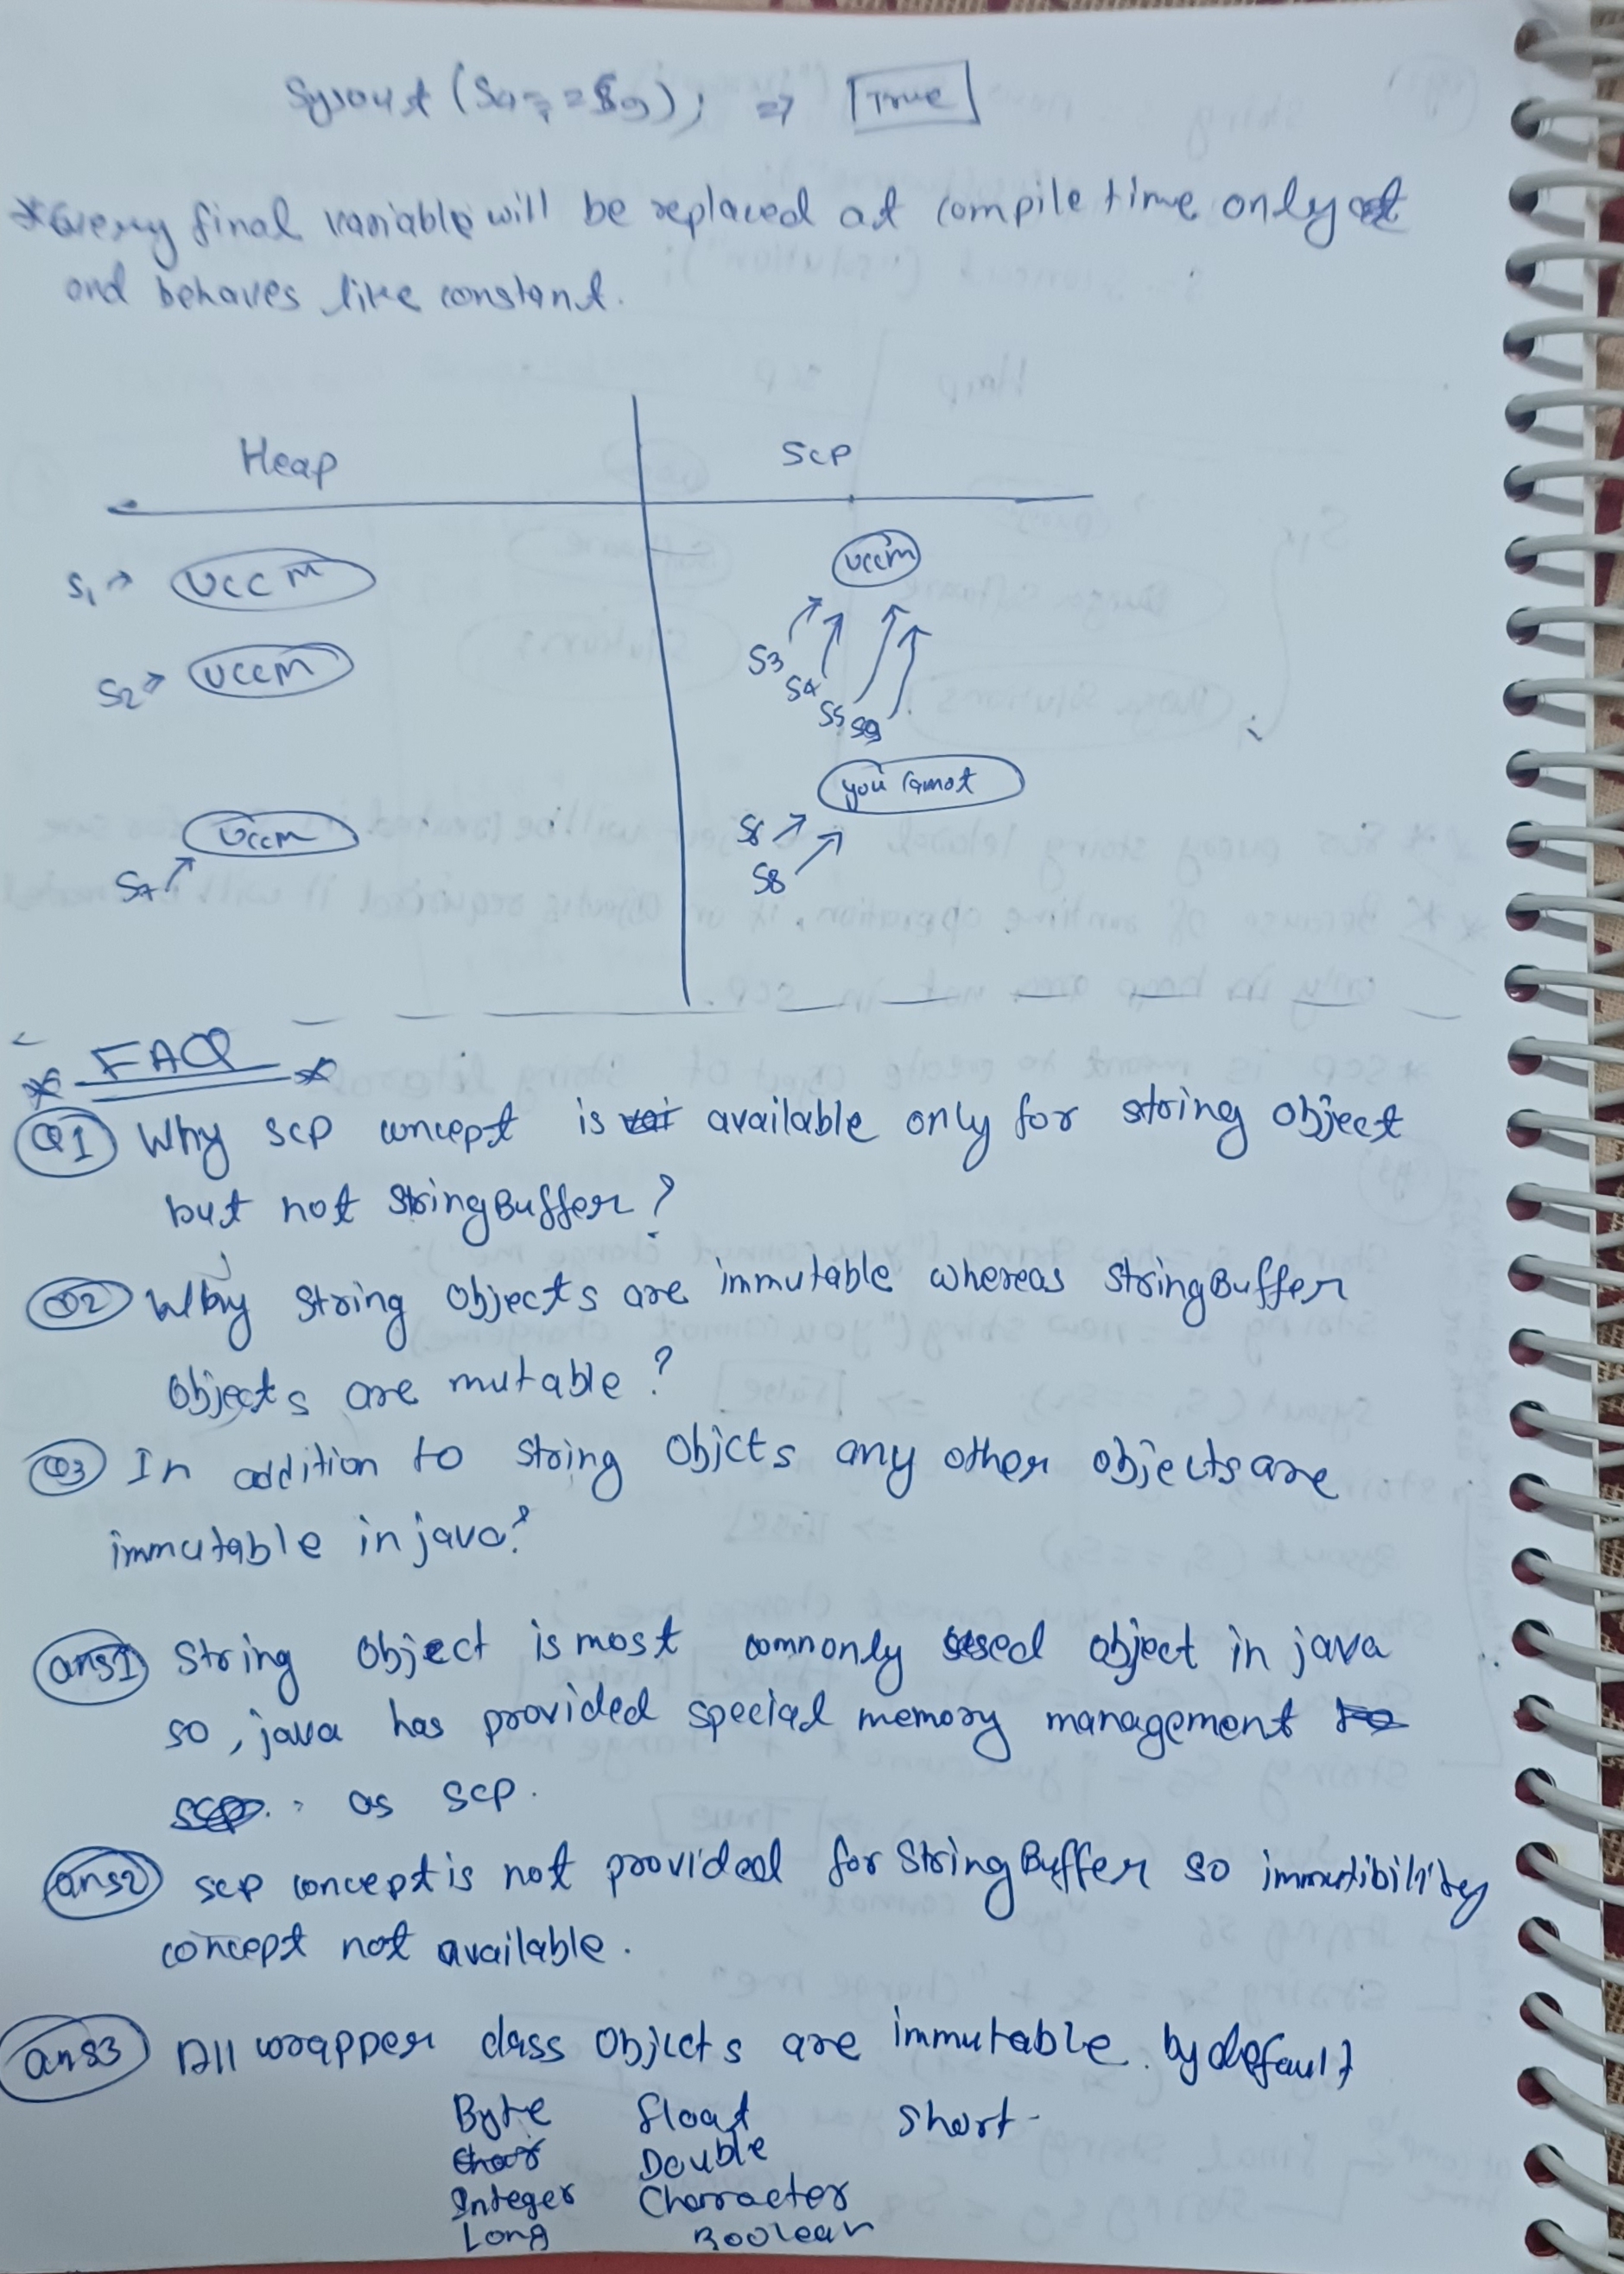 Sysout (S4 == S9); => True
* Every final variable will be replaced at compile time only
and behaves like constant.
Heap SCP
S1 → UCCM
UCCM
S2 → UCCM
S3
S4
S5 S9
you cannot
UCCM
S6
S7
S8
* FAQ *
Q1 Why SCP concept is available only for string object
but not StringBuffer?
Q2 Why String objects are immutable whereas StringBuffer
objects are mutable?
Q3 In addition to string Objcts any other objects are
immutable in java?
ans1 String Object is most commonly used object in java
so, java has provided special memory management
as SCP.
ans2 SCP concept is not provided for StringBuffer so immutibility
concept not available.
ans3 All wrapper class Objects are immutable by default
Byte Float Short
Char Double
Integer Character
Long Boolean